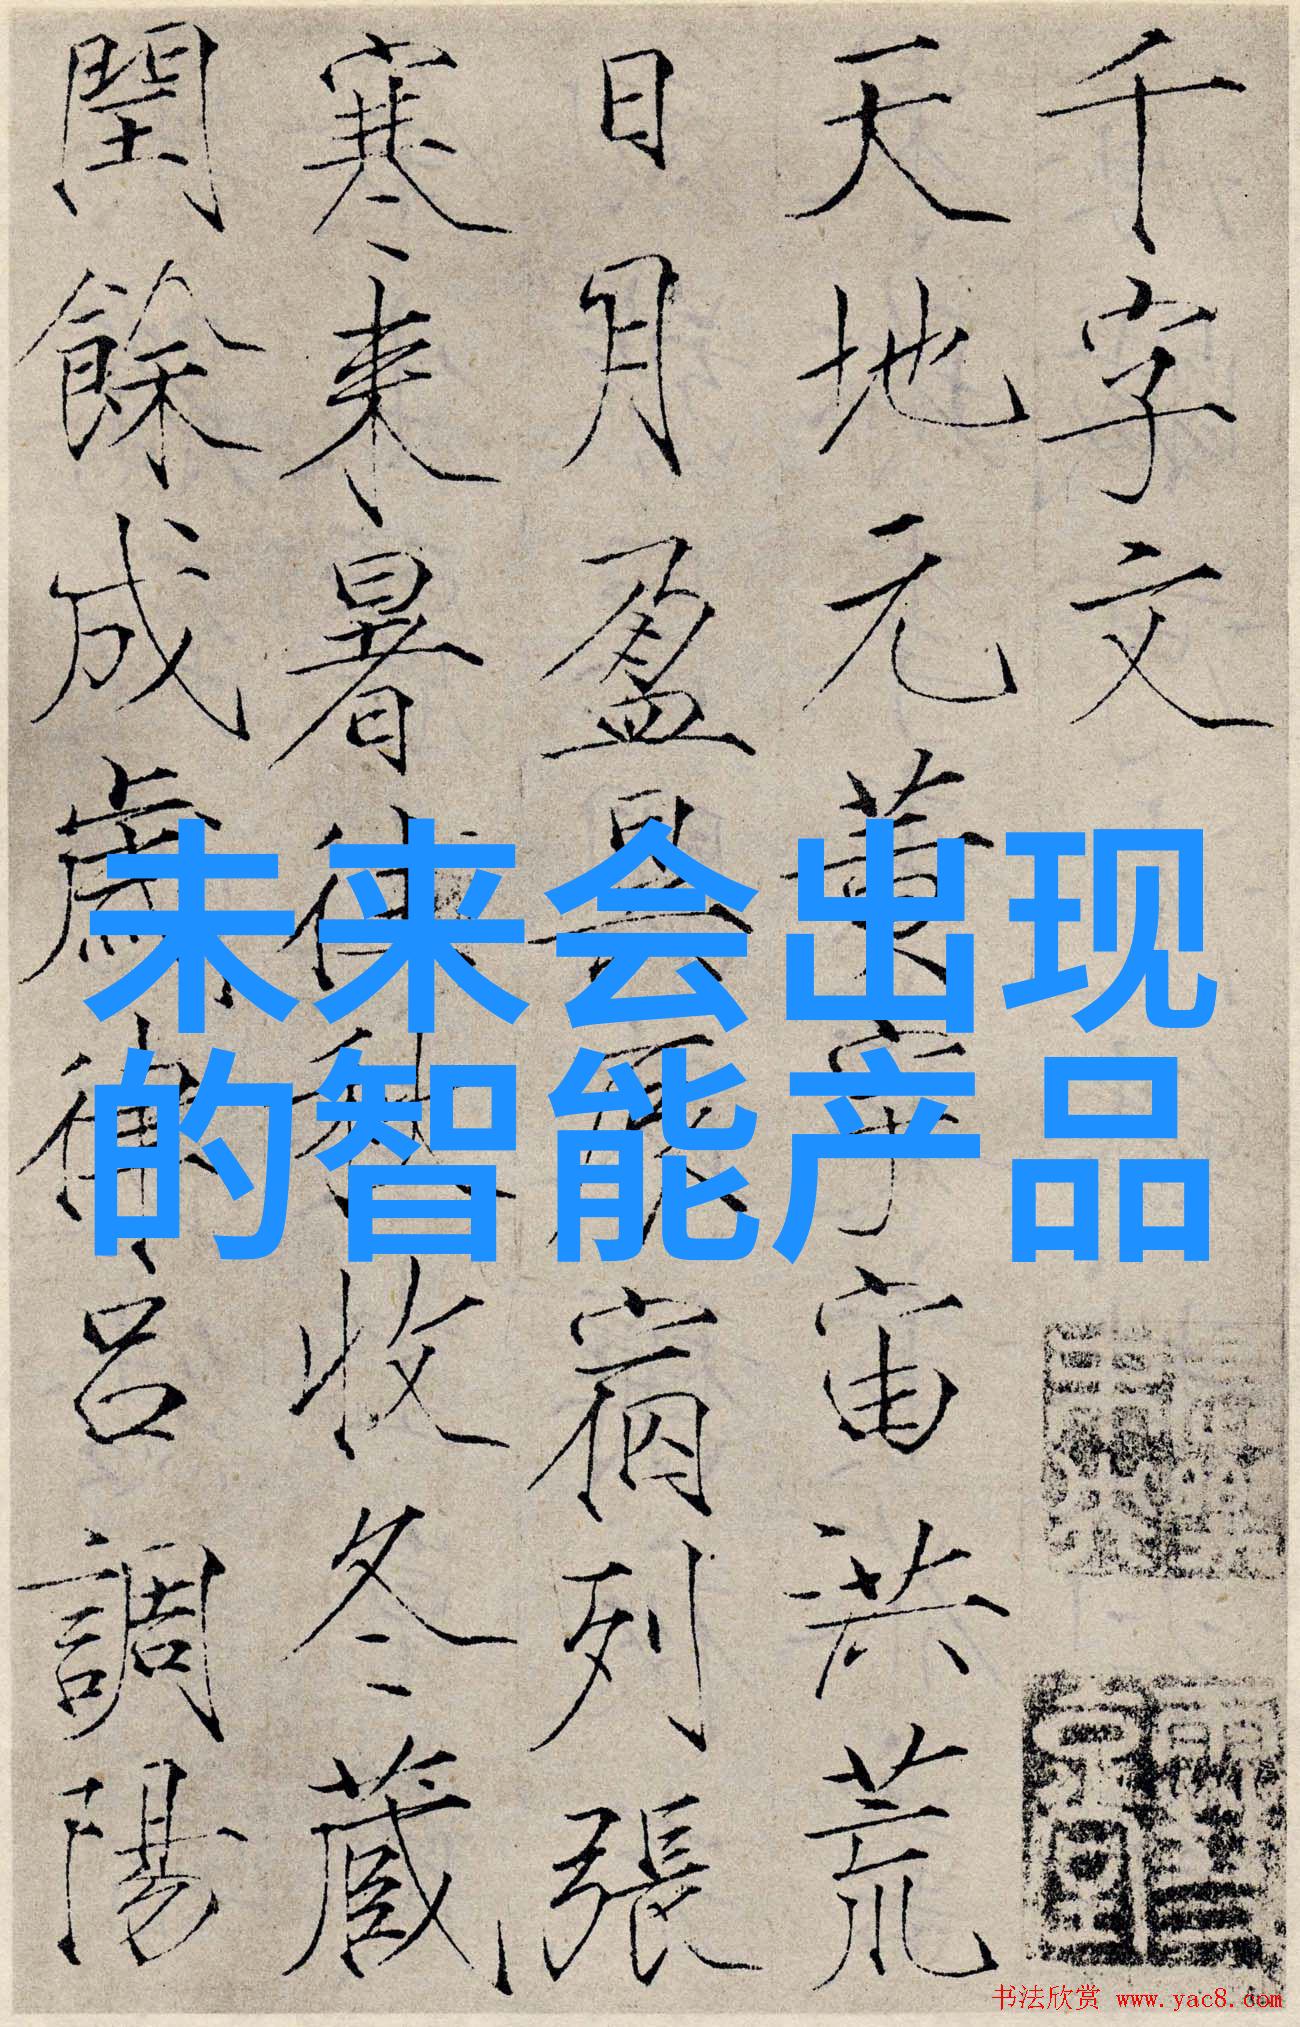 千字文
天地元黃宇宙洪荒
日月盈昃辰宿列張
寒来暑往秋收冬蔵
閏餘成歲律呂調陽
未来会出现
的智能产品
书法欣赏 www.yac8.com